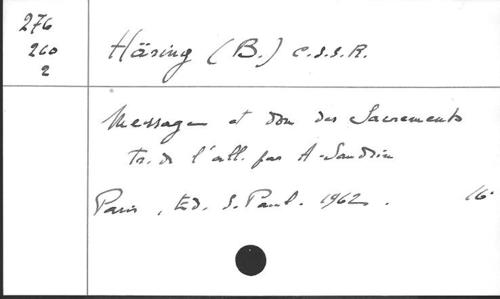 276
260
2
Häring (B.) C.S.S.R.
Message et don des Sacrements
tr. de l'all. par A. Sandrin
Paris, Ed. S. Paul. 1962. 16°